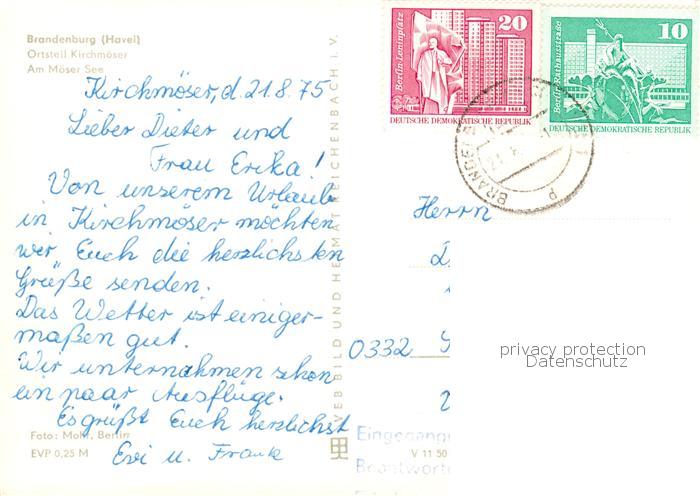 Brandenburg (Havel)
Ortsteil Kirchmöser
Am Möser See
Kirchmöser, d. 21.8.75
Lieber Dieter und
Frau Erika!
Von unserem Urlaub
in Kirchmöser möchten
wir Euch die herzlichsten
Grüße senden.
Das Wetter ist einiger-
maßen gut.
Wir unternahmen schon
ein paar Ausflüge.
Es grüßt Euch herzlichst
Evi u. Frank
Foto: Mohr, Berlin
EVP 0,25 M
VEB BILD UND HEIMAT REICHENBACH i. V.
V 11 50
Berlin-Leninplatz
20
DEUTSCHE DEMOKRATISCHE REPUBLIK
Berlin-Rathausstraße
10
DEUTSCHE DEMOKRATISCHE REPUBLIK
Herrn
0332
privacy protection
Datenschutz
Eingegang
Beantwort